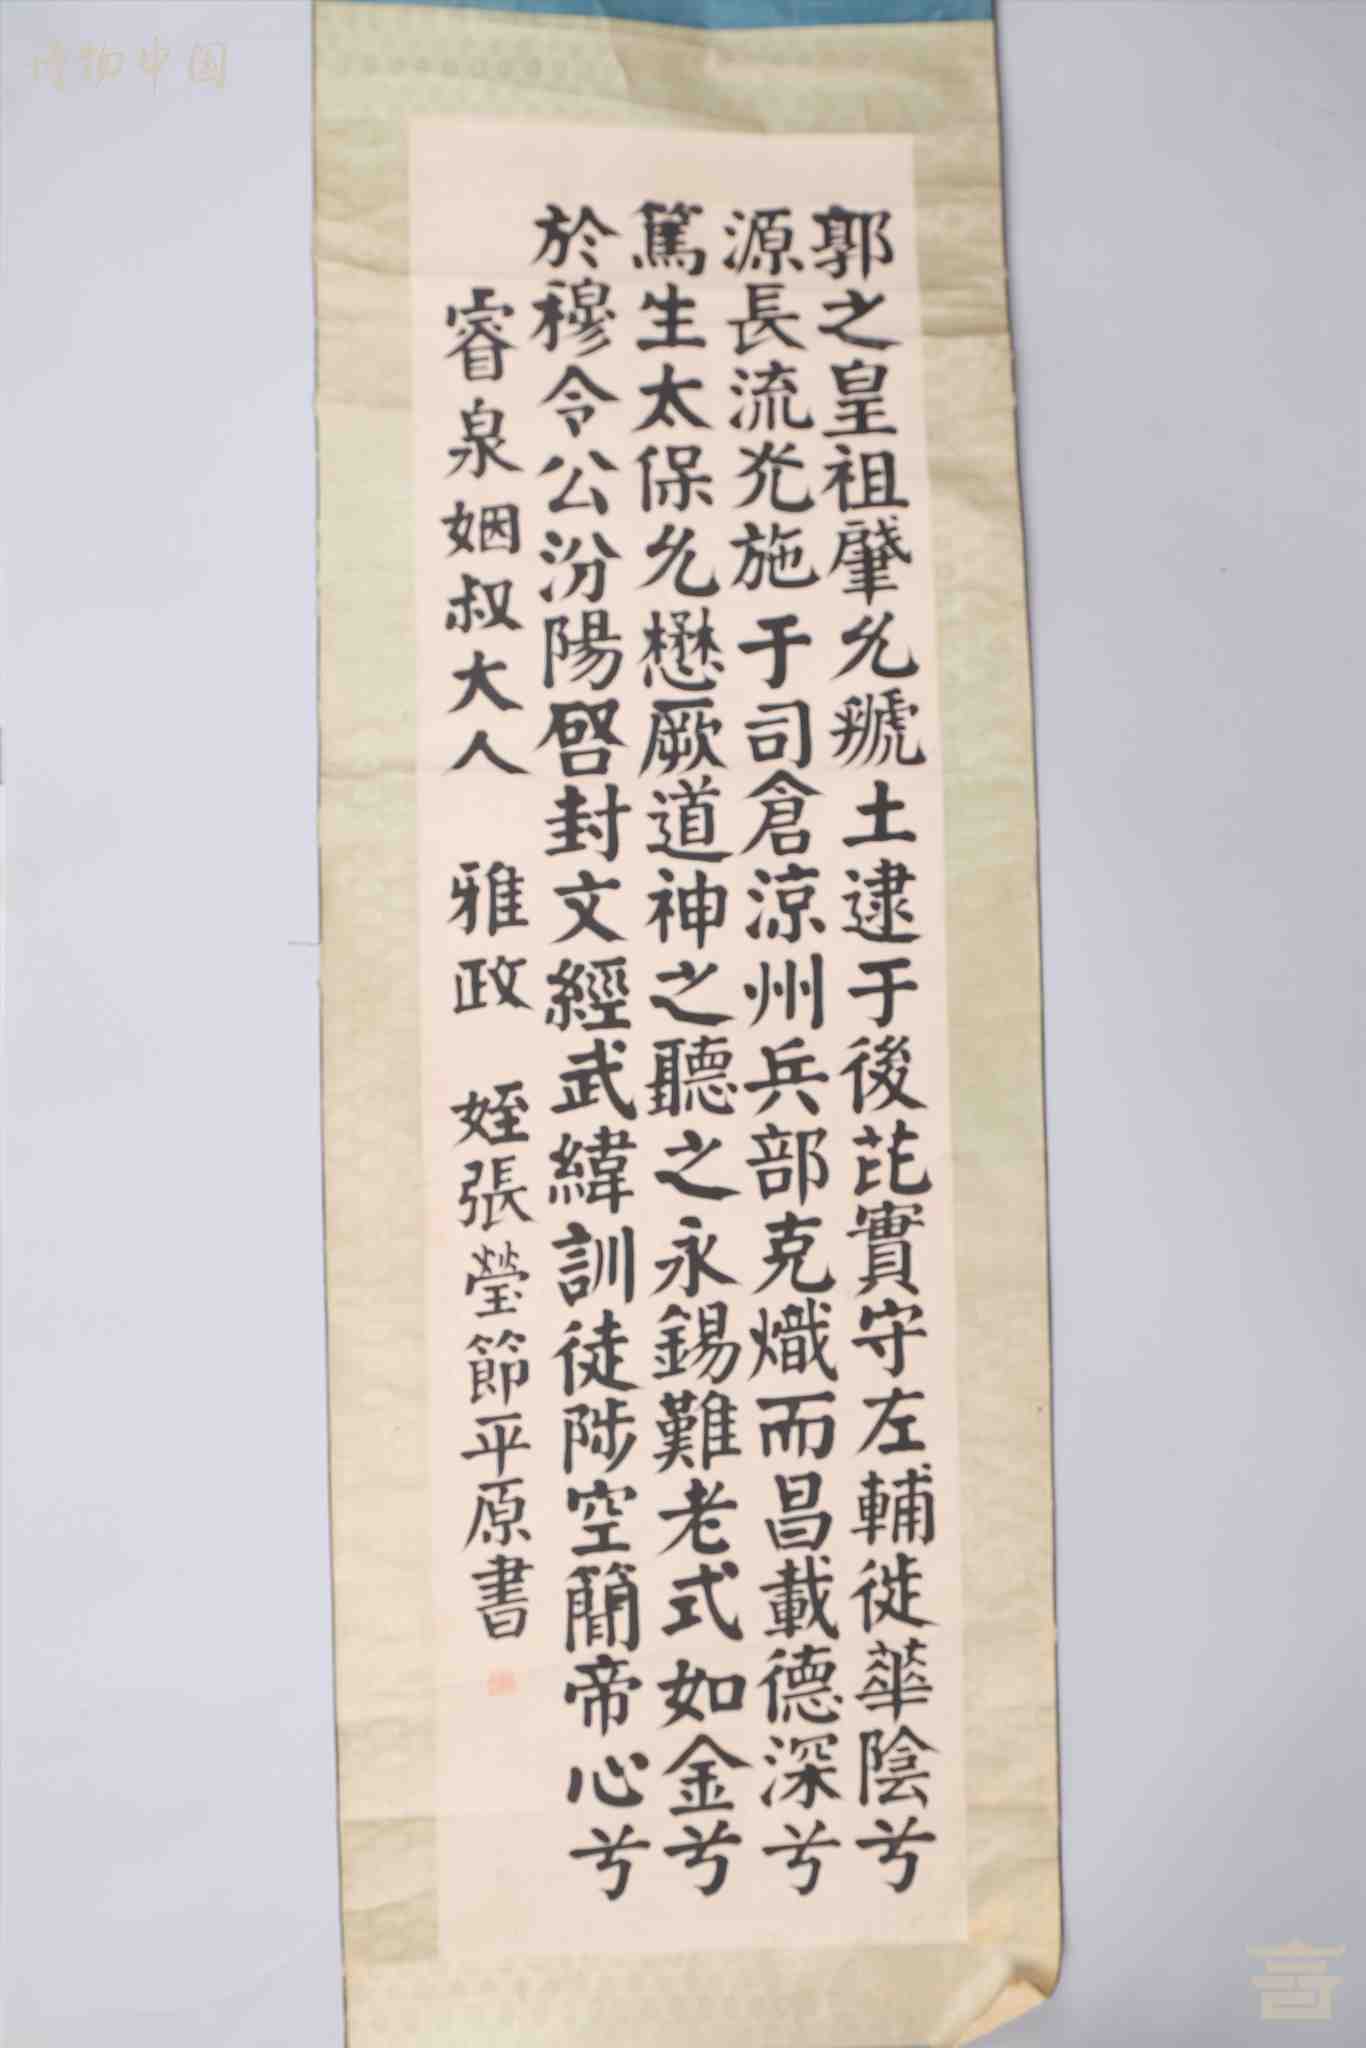 郭之皇祖肇允虢土逮于後芘實守左輔徙華陰兮
源長流光施于司倉涼州兵部克熾而昌載德深兮
篤生太保允懋厥道神之聽之永錫難老式如金兮
於穆令公汾陽啓封文經武緯訓徒陟空簡帝心兮
睿泉姻叔大人 雅政 姪張瑩節平原書
博物中国